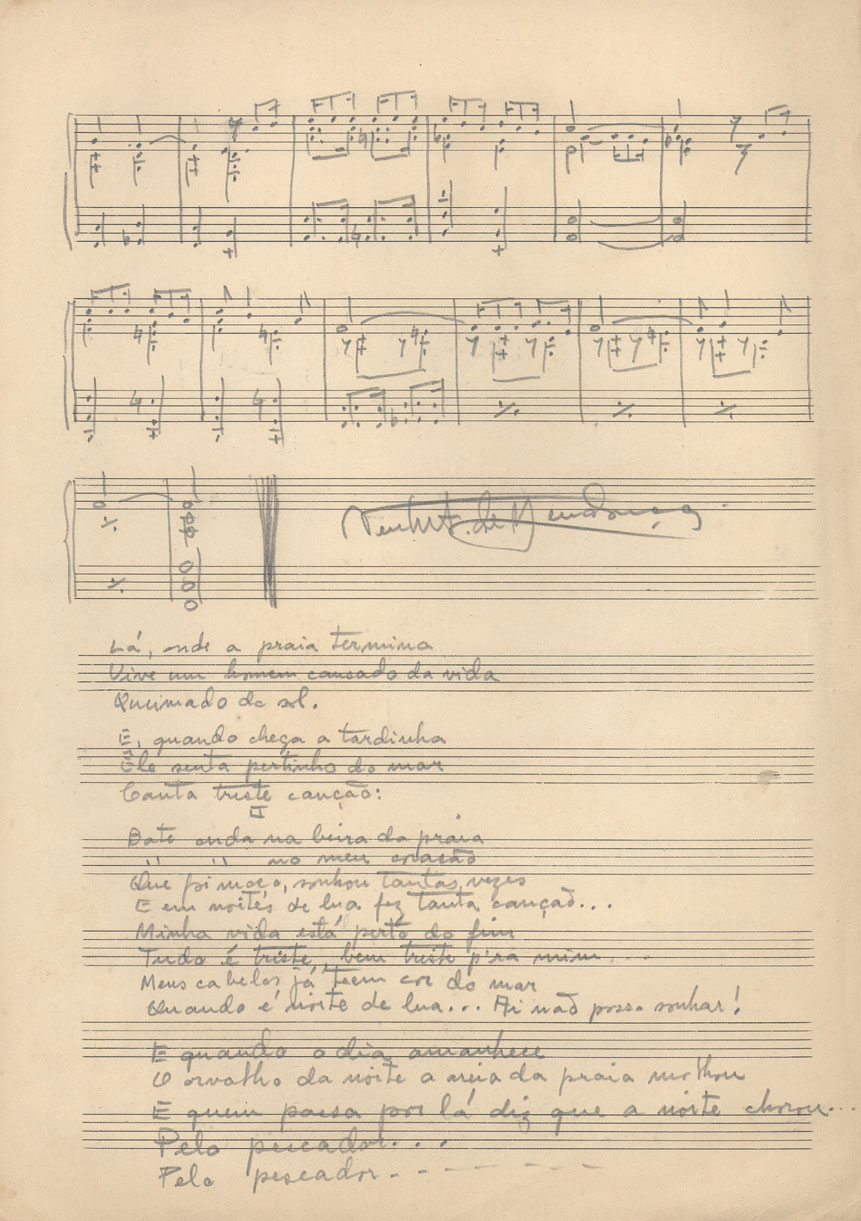 Lá, onde a praia termina
Vive um homem cansado da vida
Queimado do sol.
E, quando chega a tardinha
Êle senta pertinho do mar
Canta triste canção:
II
Bate onda na beira da praia
" " no meu coração
Que foi moço, sonhou tantas vezes
E em noites de lua fez tanta canção...
Minha vida está perto do fim
Tudo é triste, bem triste p'ra mim...
Meus cabelos já teem cor do mar
Quando é noite de lua... Ai não posso sonhar!
E quando o dia amanhece
O orvalho da noite a areia da praia molhou
E quem passa por lá diz que a noite chorou...
Pelo pescador...
Pelo pescador - - - - - -